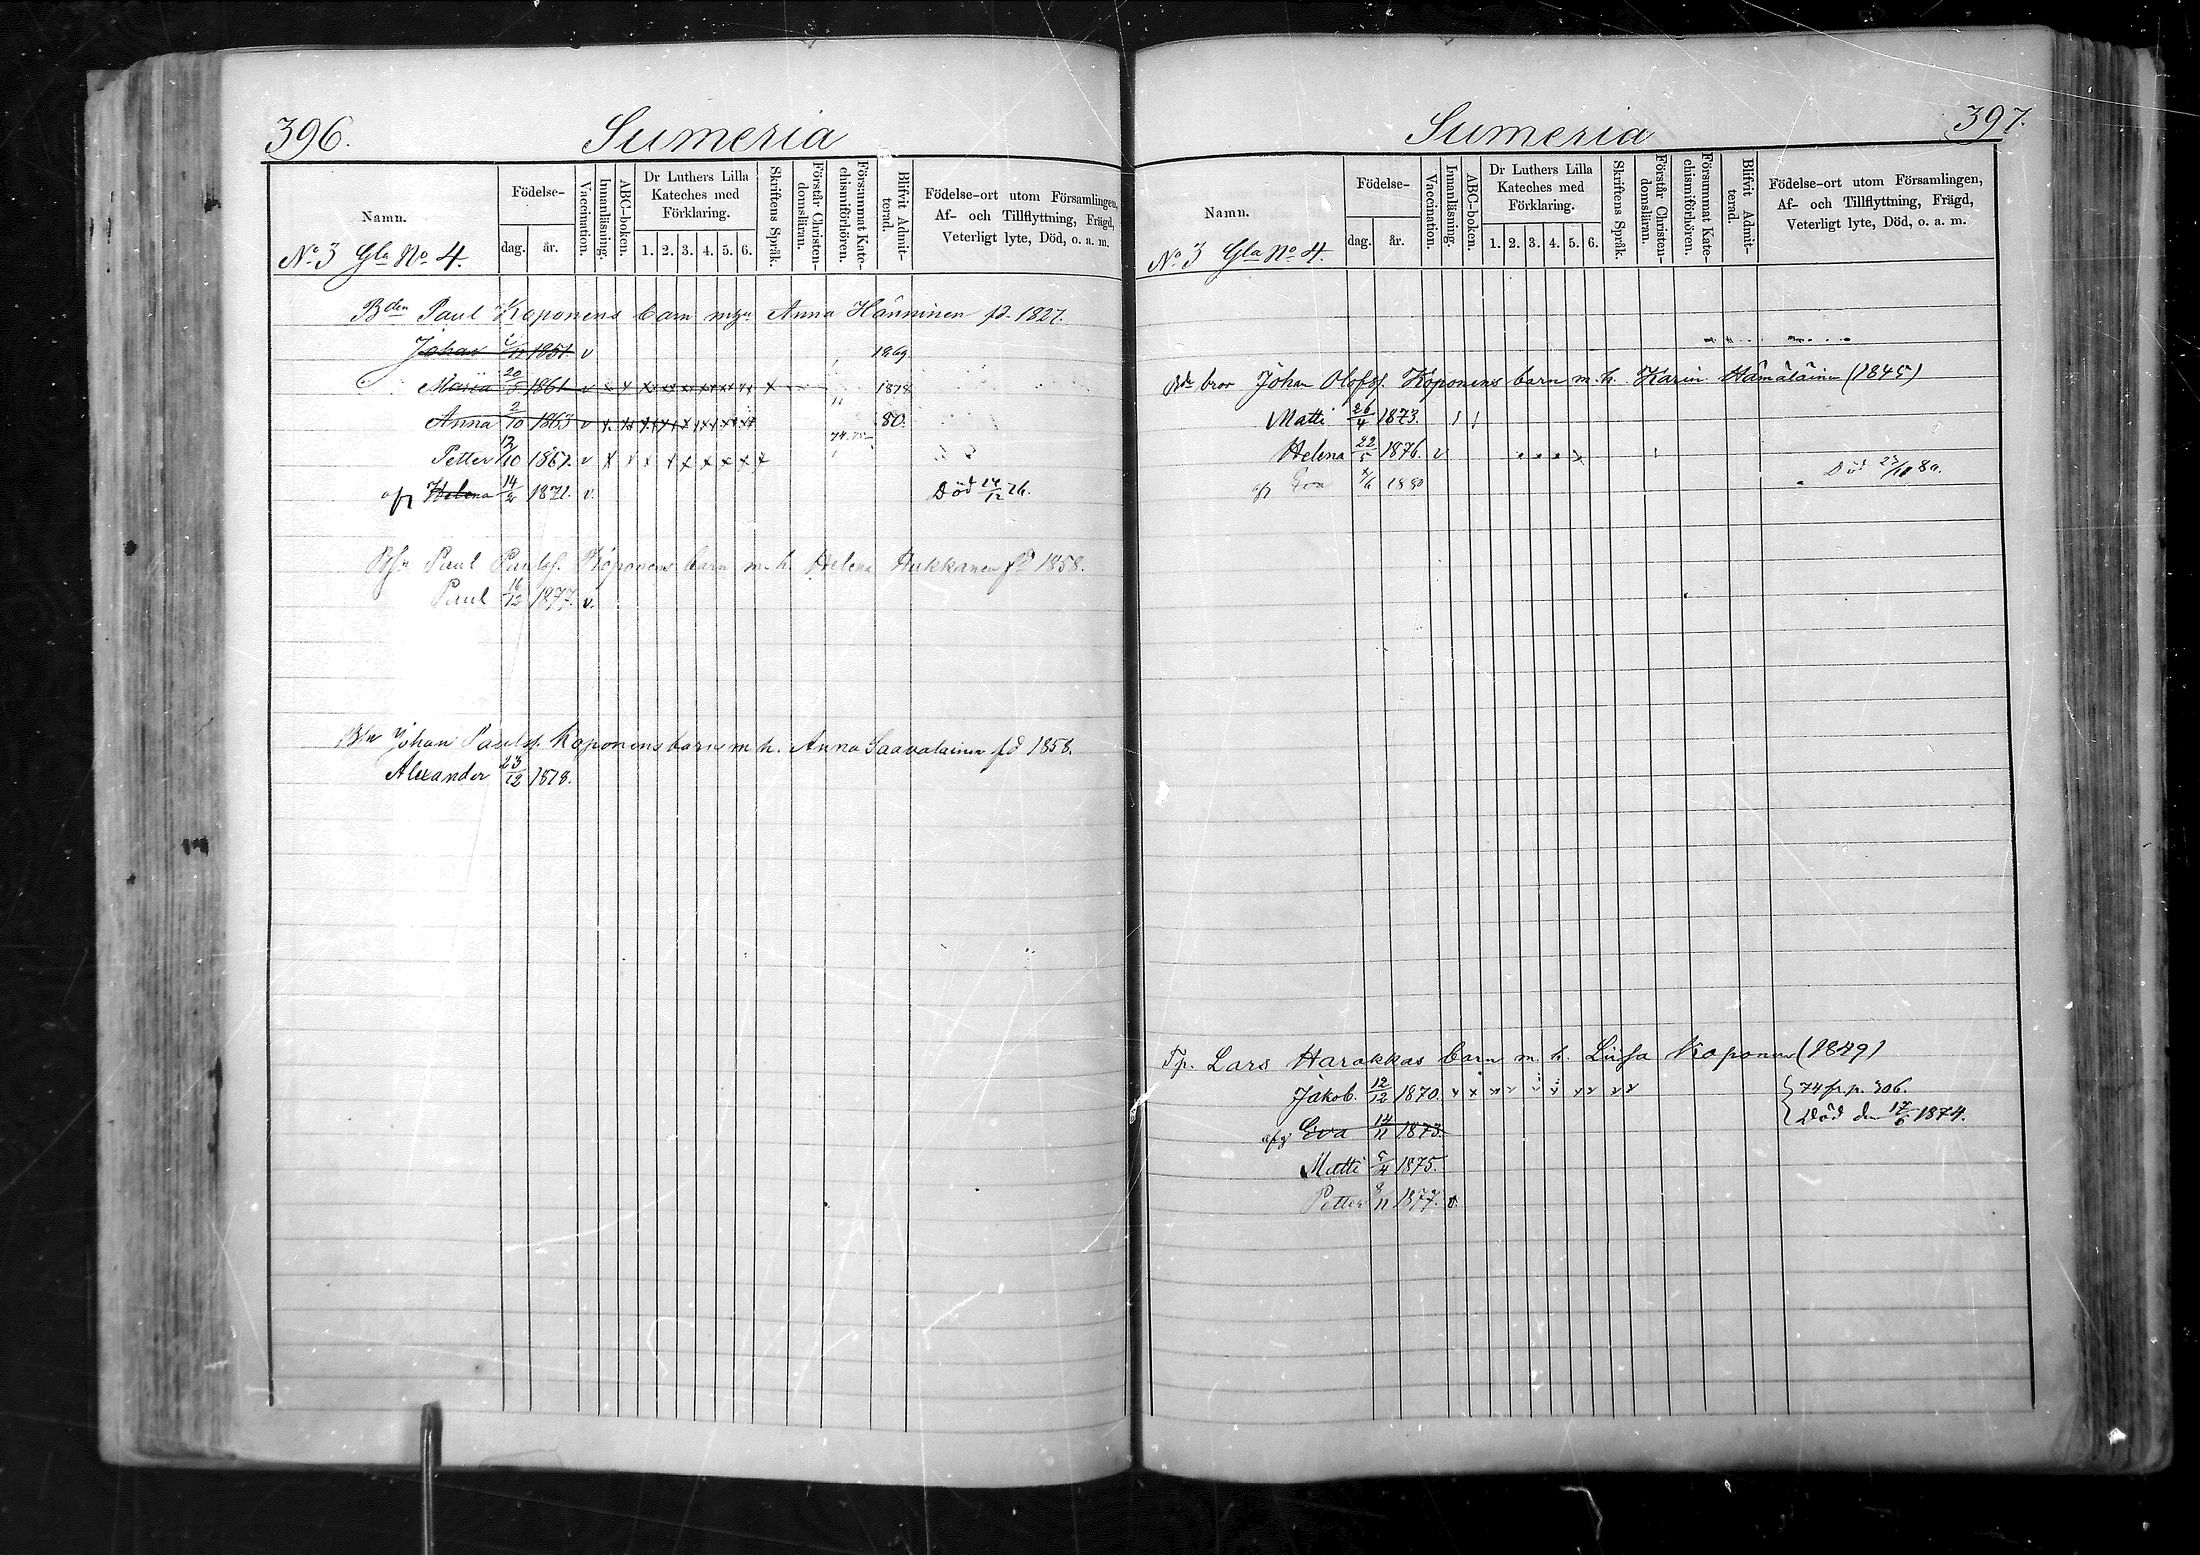 396.
Sumeria
Namn.
Födelse-
dag.
år.
Vaccination.
Innanläsning.
ABC-boken.
Dr Luthers Lilla
Kateches med
Förklaring.
1. 2. 3. 4. 5. 6.
Skriftens Språk.
Förstår Christen-
domsläran.
Försummat Kate-
chismiförhören.
Blifvit Admit-
terad.
Födelse-ort utom Församlingen,
Af- och Tillflyttning, Frägd,
Veterligt lyte, Död, o. a. m.
No 3 Gla No 4.
Bden Paul Koponens barn Anna Hänninen fd. 1827.
Johan 1851 v 1869
Maria 20/5 1861 v x x x x x x x x x 1878
Anna 2/10 1863 v x x x x x x x x 80.
Petter 12/10 1867. v x x x x x x x x x
Helena 14/2 1871. v. Död 24/12 76.
Paul Paulss. Koponens barn m. h. Helena Hukkanen fd 1858.
Paul 16/12 1877. v.
Johan Paulss. Koponens barn m h. Anna Saavalainen fd 1858.
Alexander 23/12 1878.
397.
Sumeria
Namn.
Födelse-
dag.
år.
Vaccination.
Innanläsning.
ABC-boken.
Dr Luthers Lilla
Kateches med
Förklaring.
1. 2. 3. 4. 5. 6.
Skriftens Språk.
Förstår Christen-
domsläran.
Försummat Kate-
chismiförhören.
Blifvit Admit-
terad.
Födelse-ort utom Församlingen,
Af- och Tillflyttning, Frägd,
Veterligt lyte, Död, o. a. m.
No 3 Gla No 4.
bror Johan Olofss. Koponens barn m. h. Karin Hämäläinen (1845)
Matti 26/4 1873.
Helena 22/5 1876. v
Eva 1880 Död 80.
Tp. Lars Harakkas barn m. h. Liisa Koponen (1849)
Jakob. 12/12 1870. 74 fr. p. 306.
Eva 14/11 1873. Död den 17/6 1874.
Matti 5/4 1875.
Petter 9/11 1877. v.